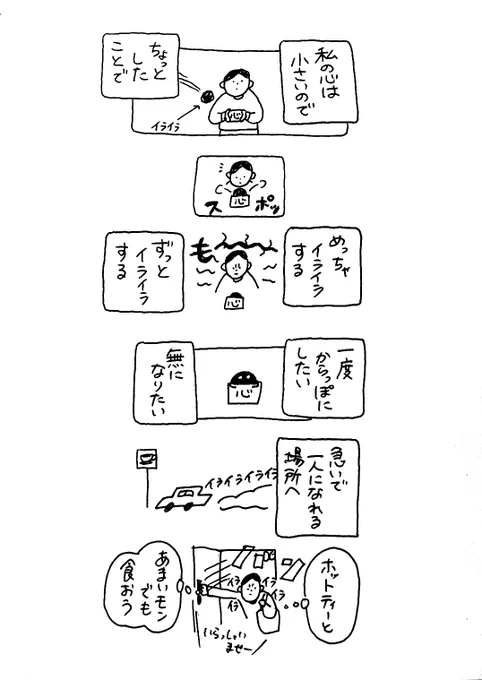 私の心は
小さいので
ちょっと
した
ことで
イライラ
心
心
スポッ
めっちゃ
イライラ
する
も〜〜〜
心
ずっと
イライラ
する
一度
からっぽに
したい
心
無に
なりたい
急いで
一人になれる
場所へ
イライライライラ
ホットティーと
バーン
イラ
イラ
イラ
イラ
いらっしゃい
ませー
あまいモン
でも
食おう